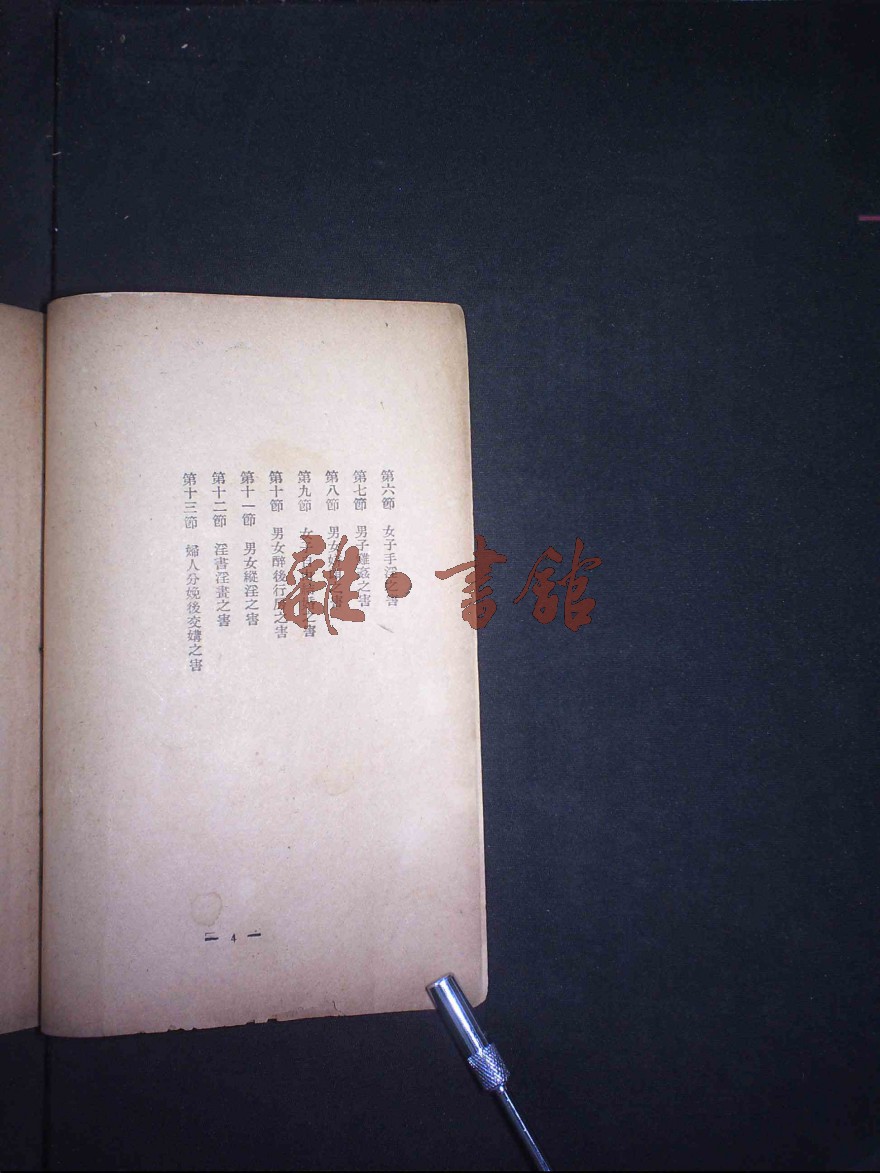 第六節 女子手淫之害
第七節 男子雞姦之害
第八節 男女
第九節 女 之害
第十節 男女醉後行房之害
第十一節 男女縱淫之害
第十二節 淫書淫畫之害
第十三節 婦人分娩後交媾之害
— 4 —
雜·書館